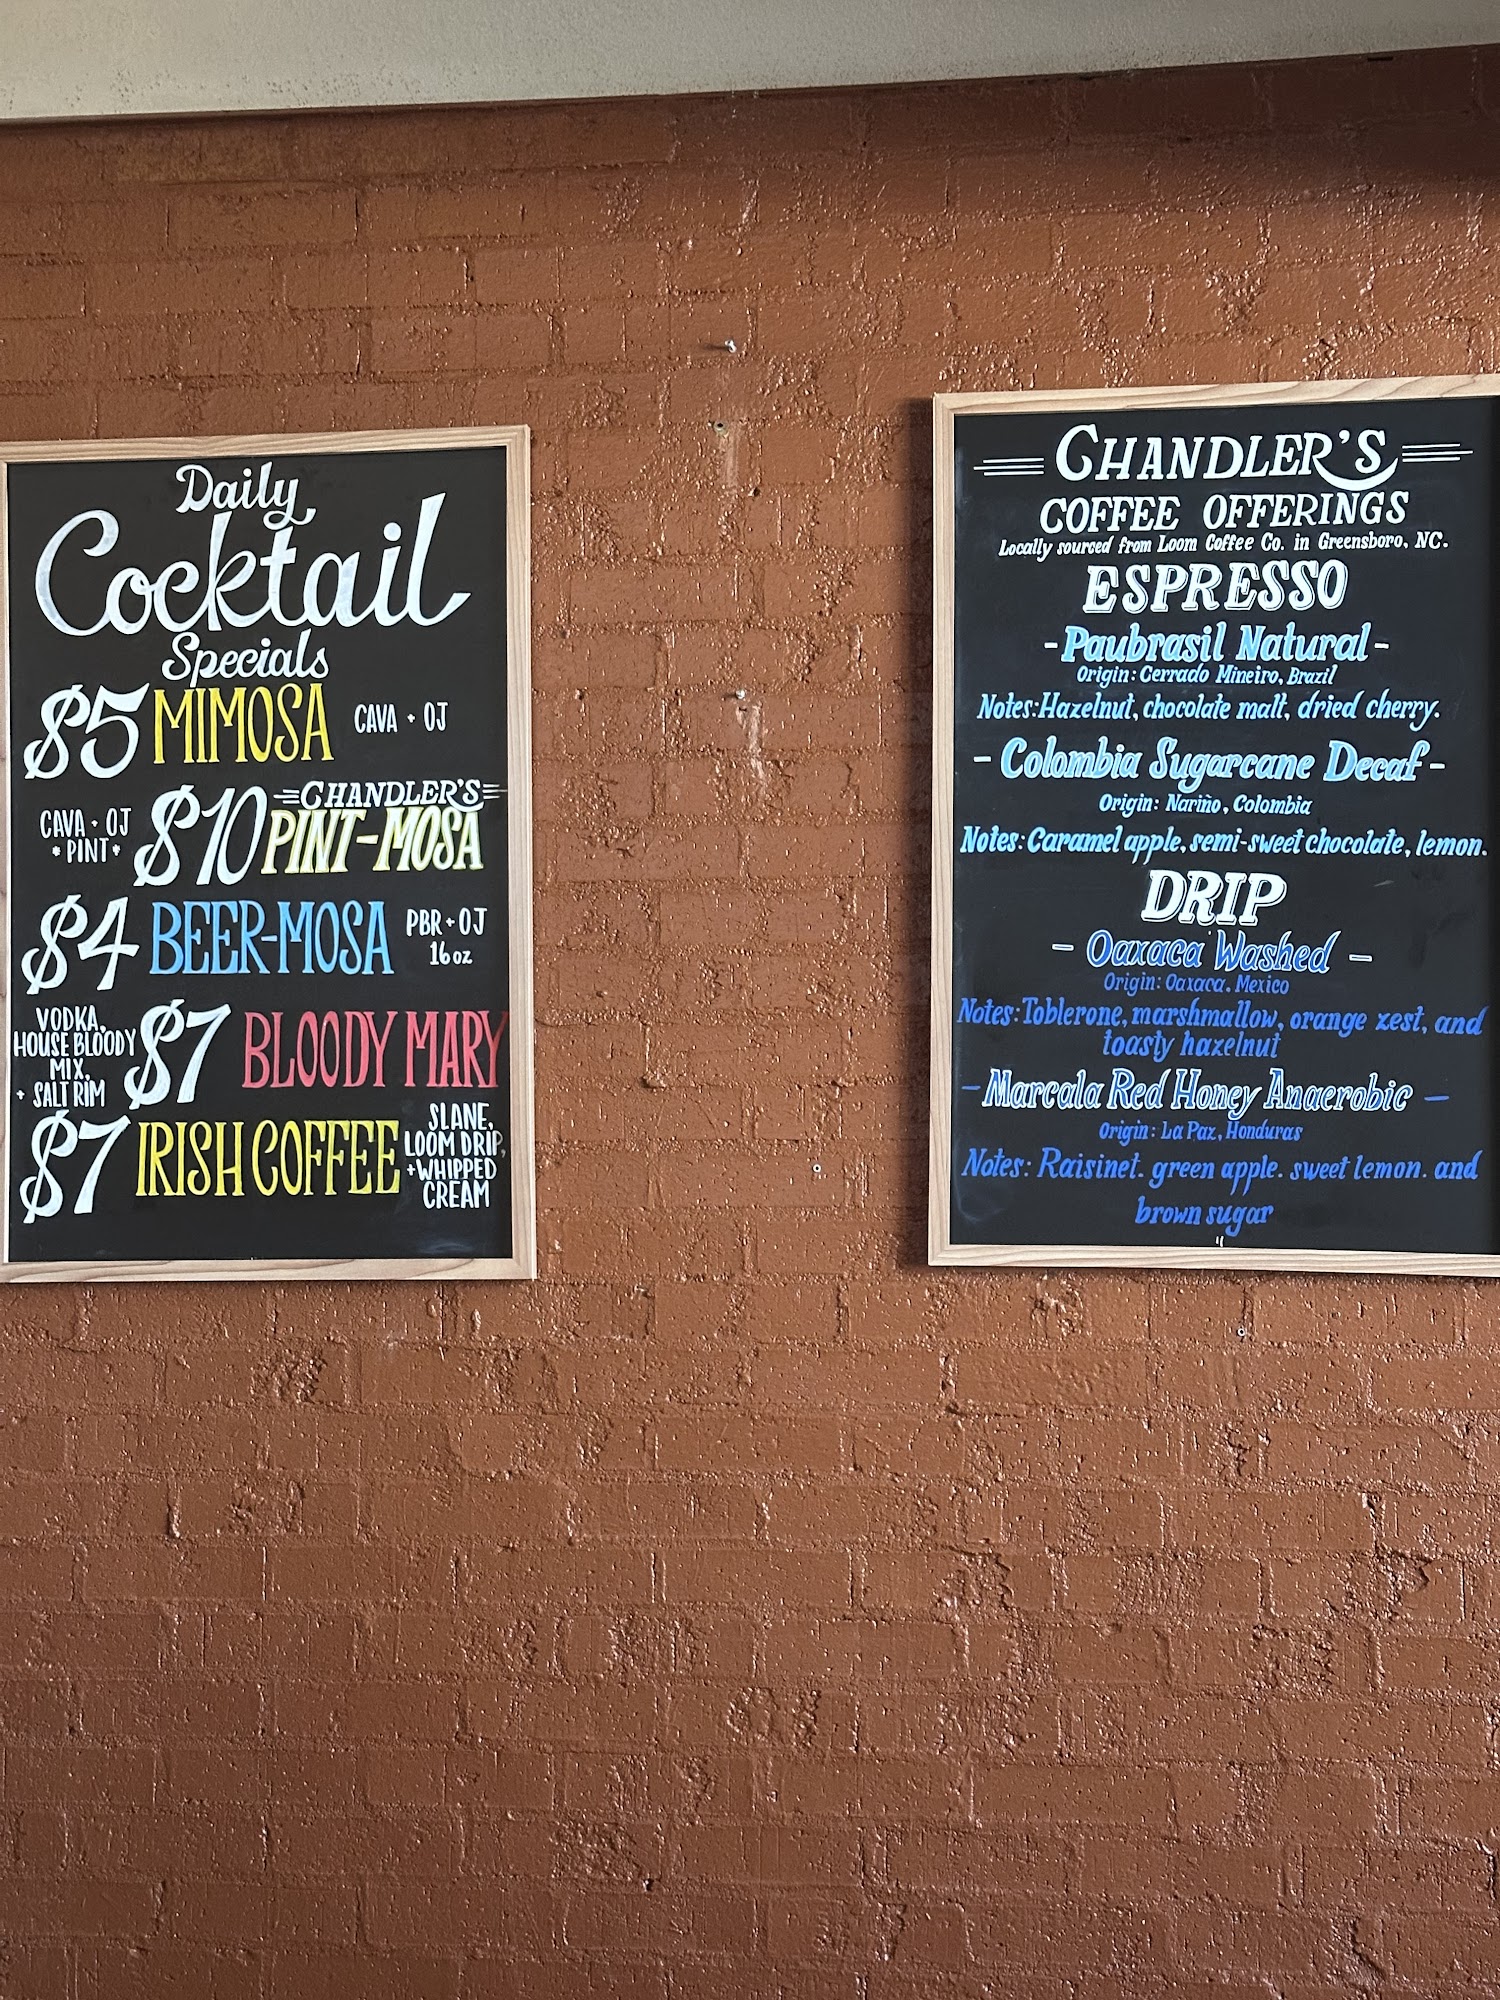 Daily
Cocktail
Specials
$5 MIMOSA CAVA + OJ
CAVA + OJ
* PINT *
$10 CHANDLER'S
PINT-MOSA
$4 BEER-MOSA PBR + OJ
16 oz
VODKA,
HOUSE BLOODY
MIX,
+ SALT RIM
$7 BLOODY MARY
$7 IRISH COFFEE
SLANE,
LOOM DRIP,
+ WHIPPED
CREAM
CHANDLER'S
COFFEE OFFERINGS
Locally sourced from Loom Coffee Co. in Greensboro, NC.
ESPRESSO
- Paubrasil Natural -
Origin: Cerrado Mineiro, Brazil
Notes: Hazelnut, chocolate malt, dried cherry.
- Colombia Sugarcane Decaf -
Origin: Nariño, Colombia
Notes: Caramel apple, semi-sweet chocolate, lemon.
DRIP
- Oaxaca Washed -
Origin: Oaxaca, Mexico
Notes: Toblerone, marshmallow, orange zest, and
toasty hazelnut
- Marcala Red Honey Anaerobic -
Origin: La Paz, Honduras
Notes: Raisinet. green apple. sweet lemon. and
brown sugar